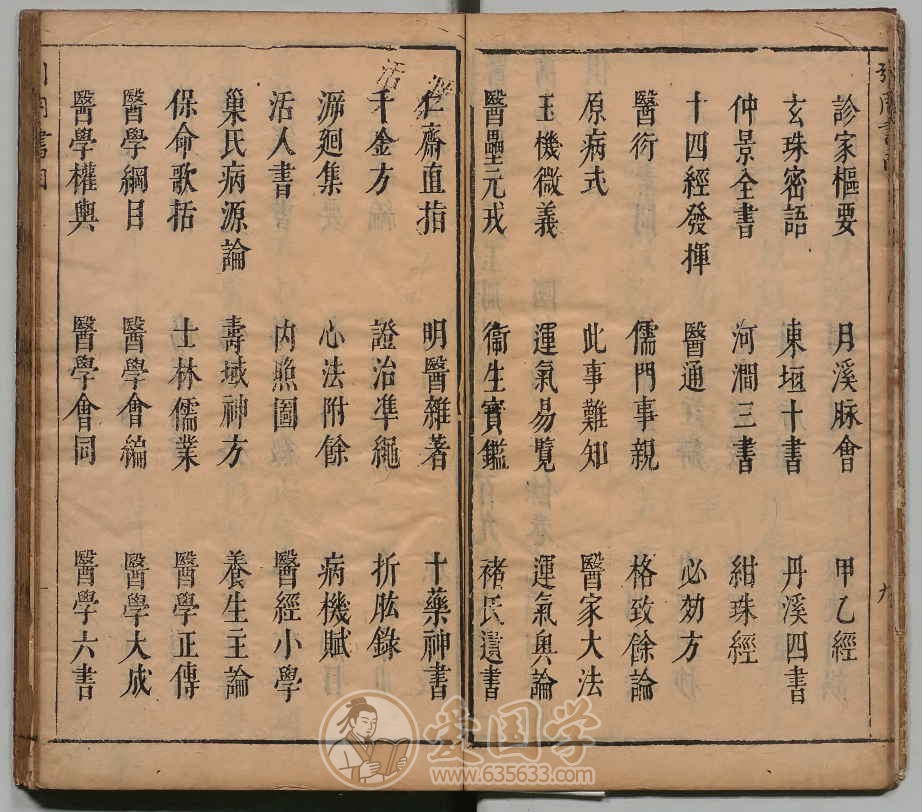 診家樞要 月溪脉會 甲乙經
玄珠密語 東垣十書 丹溪四書
仲景全書 河澗三書 紺珠經
十四經發揮 醫通 必効方
醫衍 儒門事親 格致餘論
原病式 此事難知 醫家大法
玉機微義 運氣易覽 運氣奥論
醫壘元戎 衞生寶鑑 褚氏遺書
仁齋直指 明醫雜著 十藥神書
千金方 證治凖繩 折肱錄
泝𢌞集 心法附餘 病機賦
活人書 内照圖 醫經小學
巢氏病源論 壽域神方 養生主論
保命歌括 士林儒業 醫學正傳
醫學綱目 醫學會編 醫學大成
醫學權輿 醫學會同 醫學六書
九
活
爱国学
www.635633.com